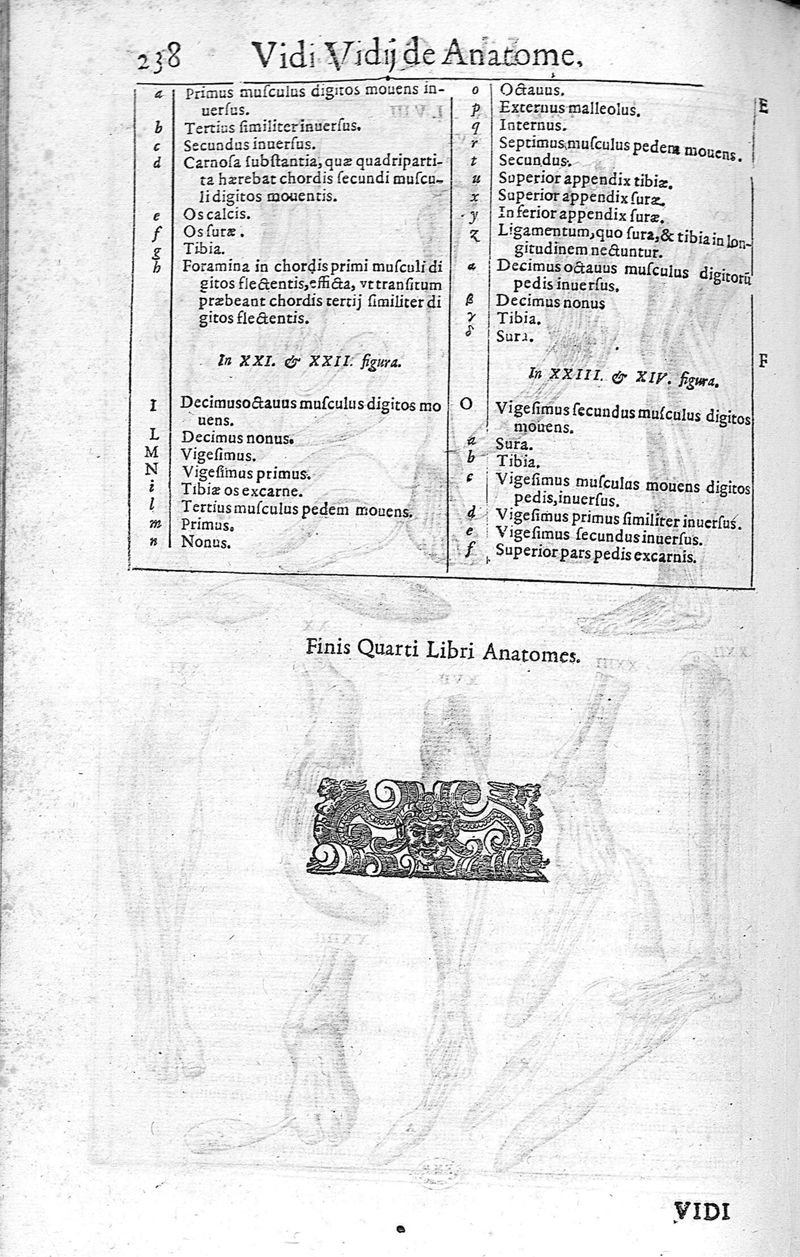 238 Vidi Vidij de Anatome,
a Primus muſculus digitos mouens in-
uerſus.
b Tertius ſimiliter inuerſus.
c Secundus inuerſus.
d Carnoſa ſubſtantia, quæ quadriparti-
ta hærebat chordis ſecundi muſcu-
li digitos mouentis.
e Os calcis.
f Os ſuræ.
g Tibia.
h Foramina in chordis primi muſculi di
gitos flectentis, effícta, vt tranſitum
præbeant chordis tertij ſimiliter di
gitos flectentis.
In XXI. & XXII. figura.
I Decimusoctauus muſculus digitos mo
uens.
L Decimus nonus.
M Vigeſimus.
N Vigeſimus primus.
i Tibiæ os excarne.
l Tertius muſculus pedem mouens.
m Primus.
n Nonus.
o Octauus.
p Externus malleolus.
q Internus.
r Septimus muſculus pedem mouens.
t Secundus.
u Superior appendix tibiæ.
x Superior appendix ſuræ.
y Inferior appendix ſuræ.
z Ligamentum, quo ſura, & tibia in lon-
gitudinem nectuntur.
α Decimus octauus muſculus digitorū
pedis inuerſus.
β Decimus nonus
γ Tibia.
δ Sura.
In XXIII. & XIV. figura.
O Vigeſimus ſecundus muſculus digitos
mouens.
a Sura.
b Tibia.
c Vigeſimus muſculus mouens digitos
pedis, inuerſus.
d Vigeſimus primus ſimiliter inuerſus.
e Vigeſimus ſecundus inuerſus.
f Superior pars pedis excarnis.
E
F
Finis Quarti Libri Anatomes.
VIDI